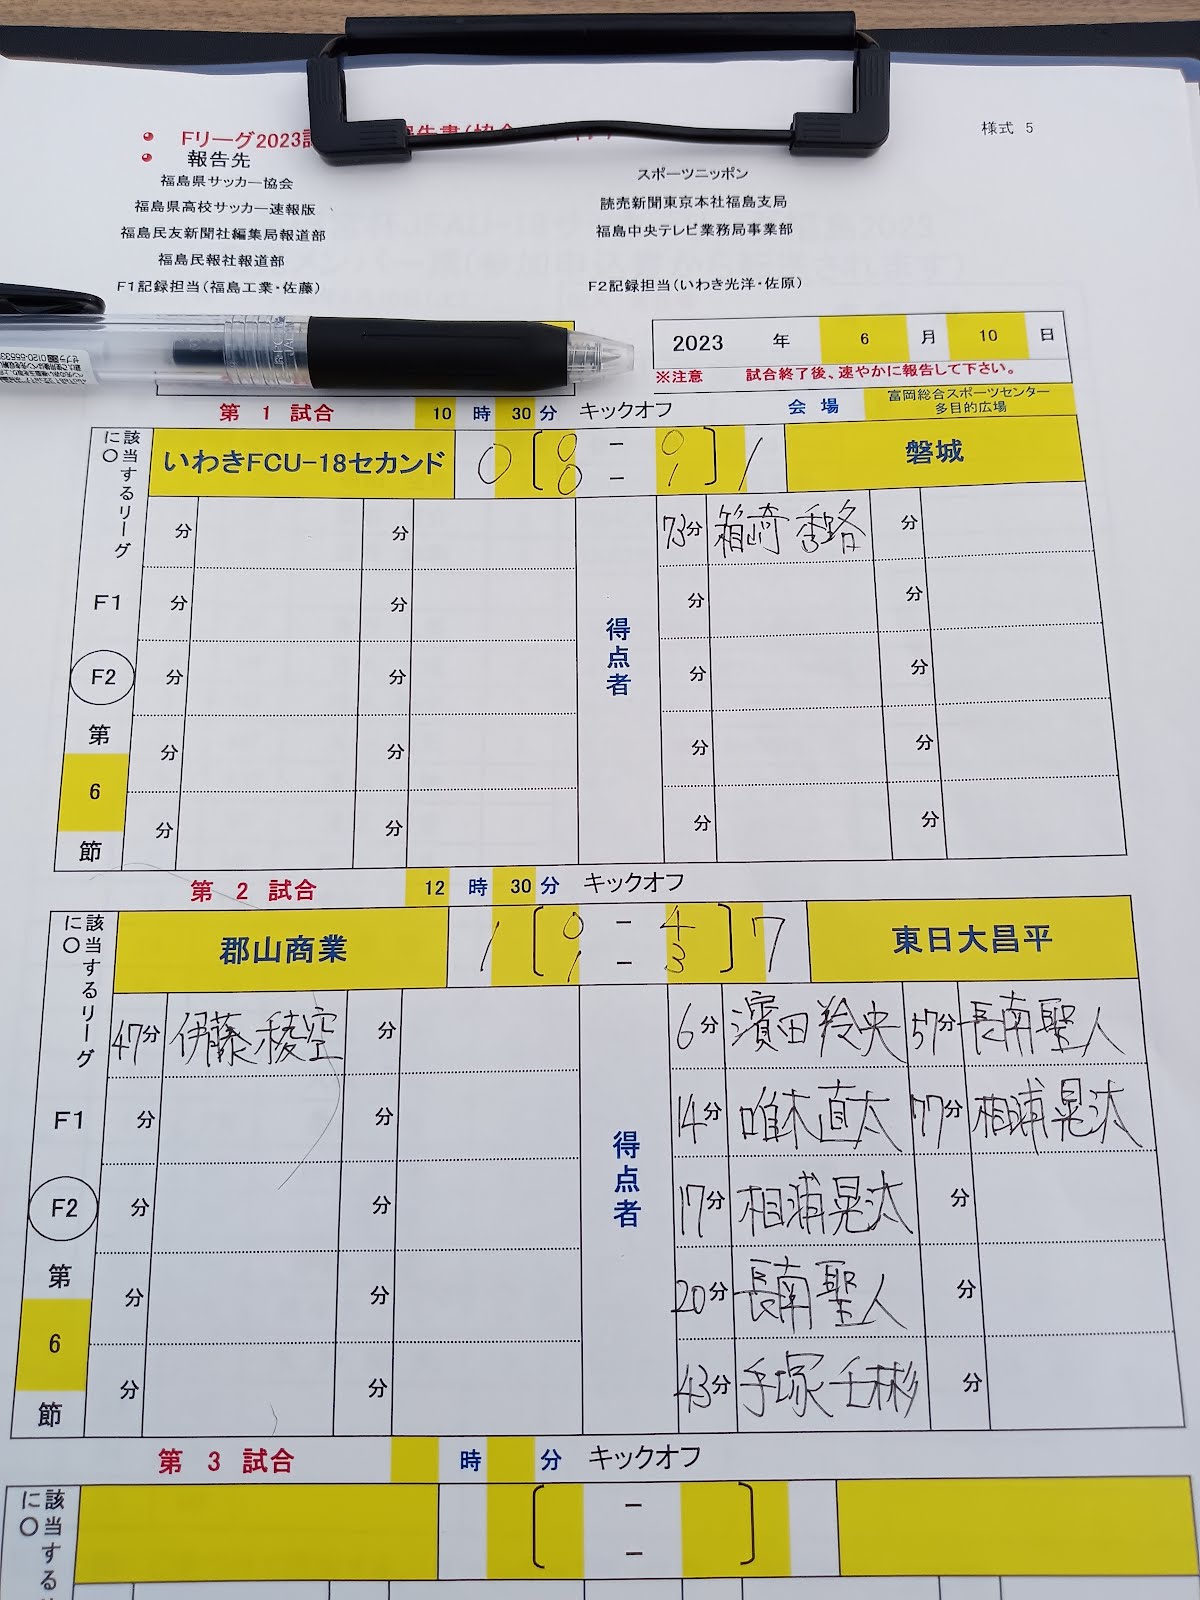 様式 5
Fリーグ2023
報告先
福島県サッカー協会
スポーツニッポン
福島県高校サッカー速報版
読売新聞東京本社福島支局
福島民友新聞社編集局報道部
福島中央テレビ業務局事業部
福島民報社報道部
F1記録担当(福島工業・佐藤)
F2記録担当(いわき光洋・佐原)
2023 年 6 月 10 日
※注意 試合終了後、速やかに報告して下さい。
第 1 試合 10 時 30 分 キックオフ 会 場 富岡総合スポーツセンター
多目的広場
該当するリーグ
に○
いわきFCU-18セカンド 0 0 - 0 1 磐城
0 - 1
分 分 73分 箱崎 秀路 分
F1 分 分 分 分
得点者
F2 分 分 分 分
第
分 分 分 分
6
節 分 分 分 分
第 2 試合 12 時 30 分 キックオフ
該当するリーグ
に○
郡山商業 1 0 - 4 7 東日大昌平
1 - 3
47分 伊藤 稜空 分 6分 濱田 羚央 57分 長南 聖人
F1 分 分 14分 唯木 直太 77分 相浦 晃汰
得点者
F2 分 分 17分 相浦 晃汰 分
第
分 分 20分 長南 聖人 分
6
節 分 分 43分 手塚 壬彬 分
第 3 試合 時 分 キックオフ
該当する
に○
-
-